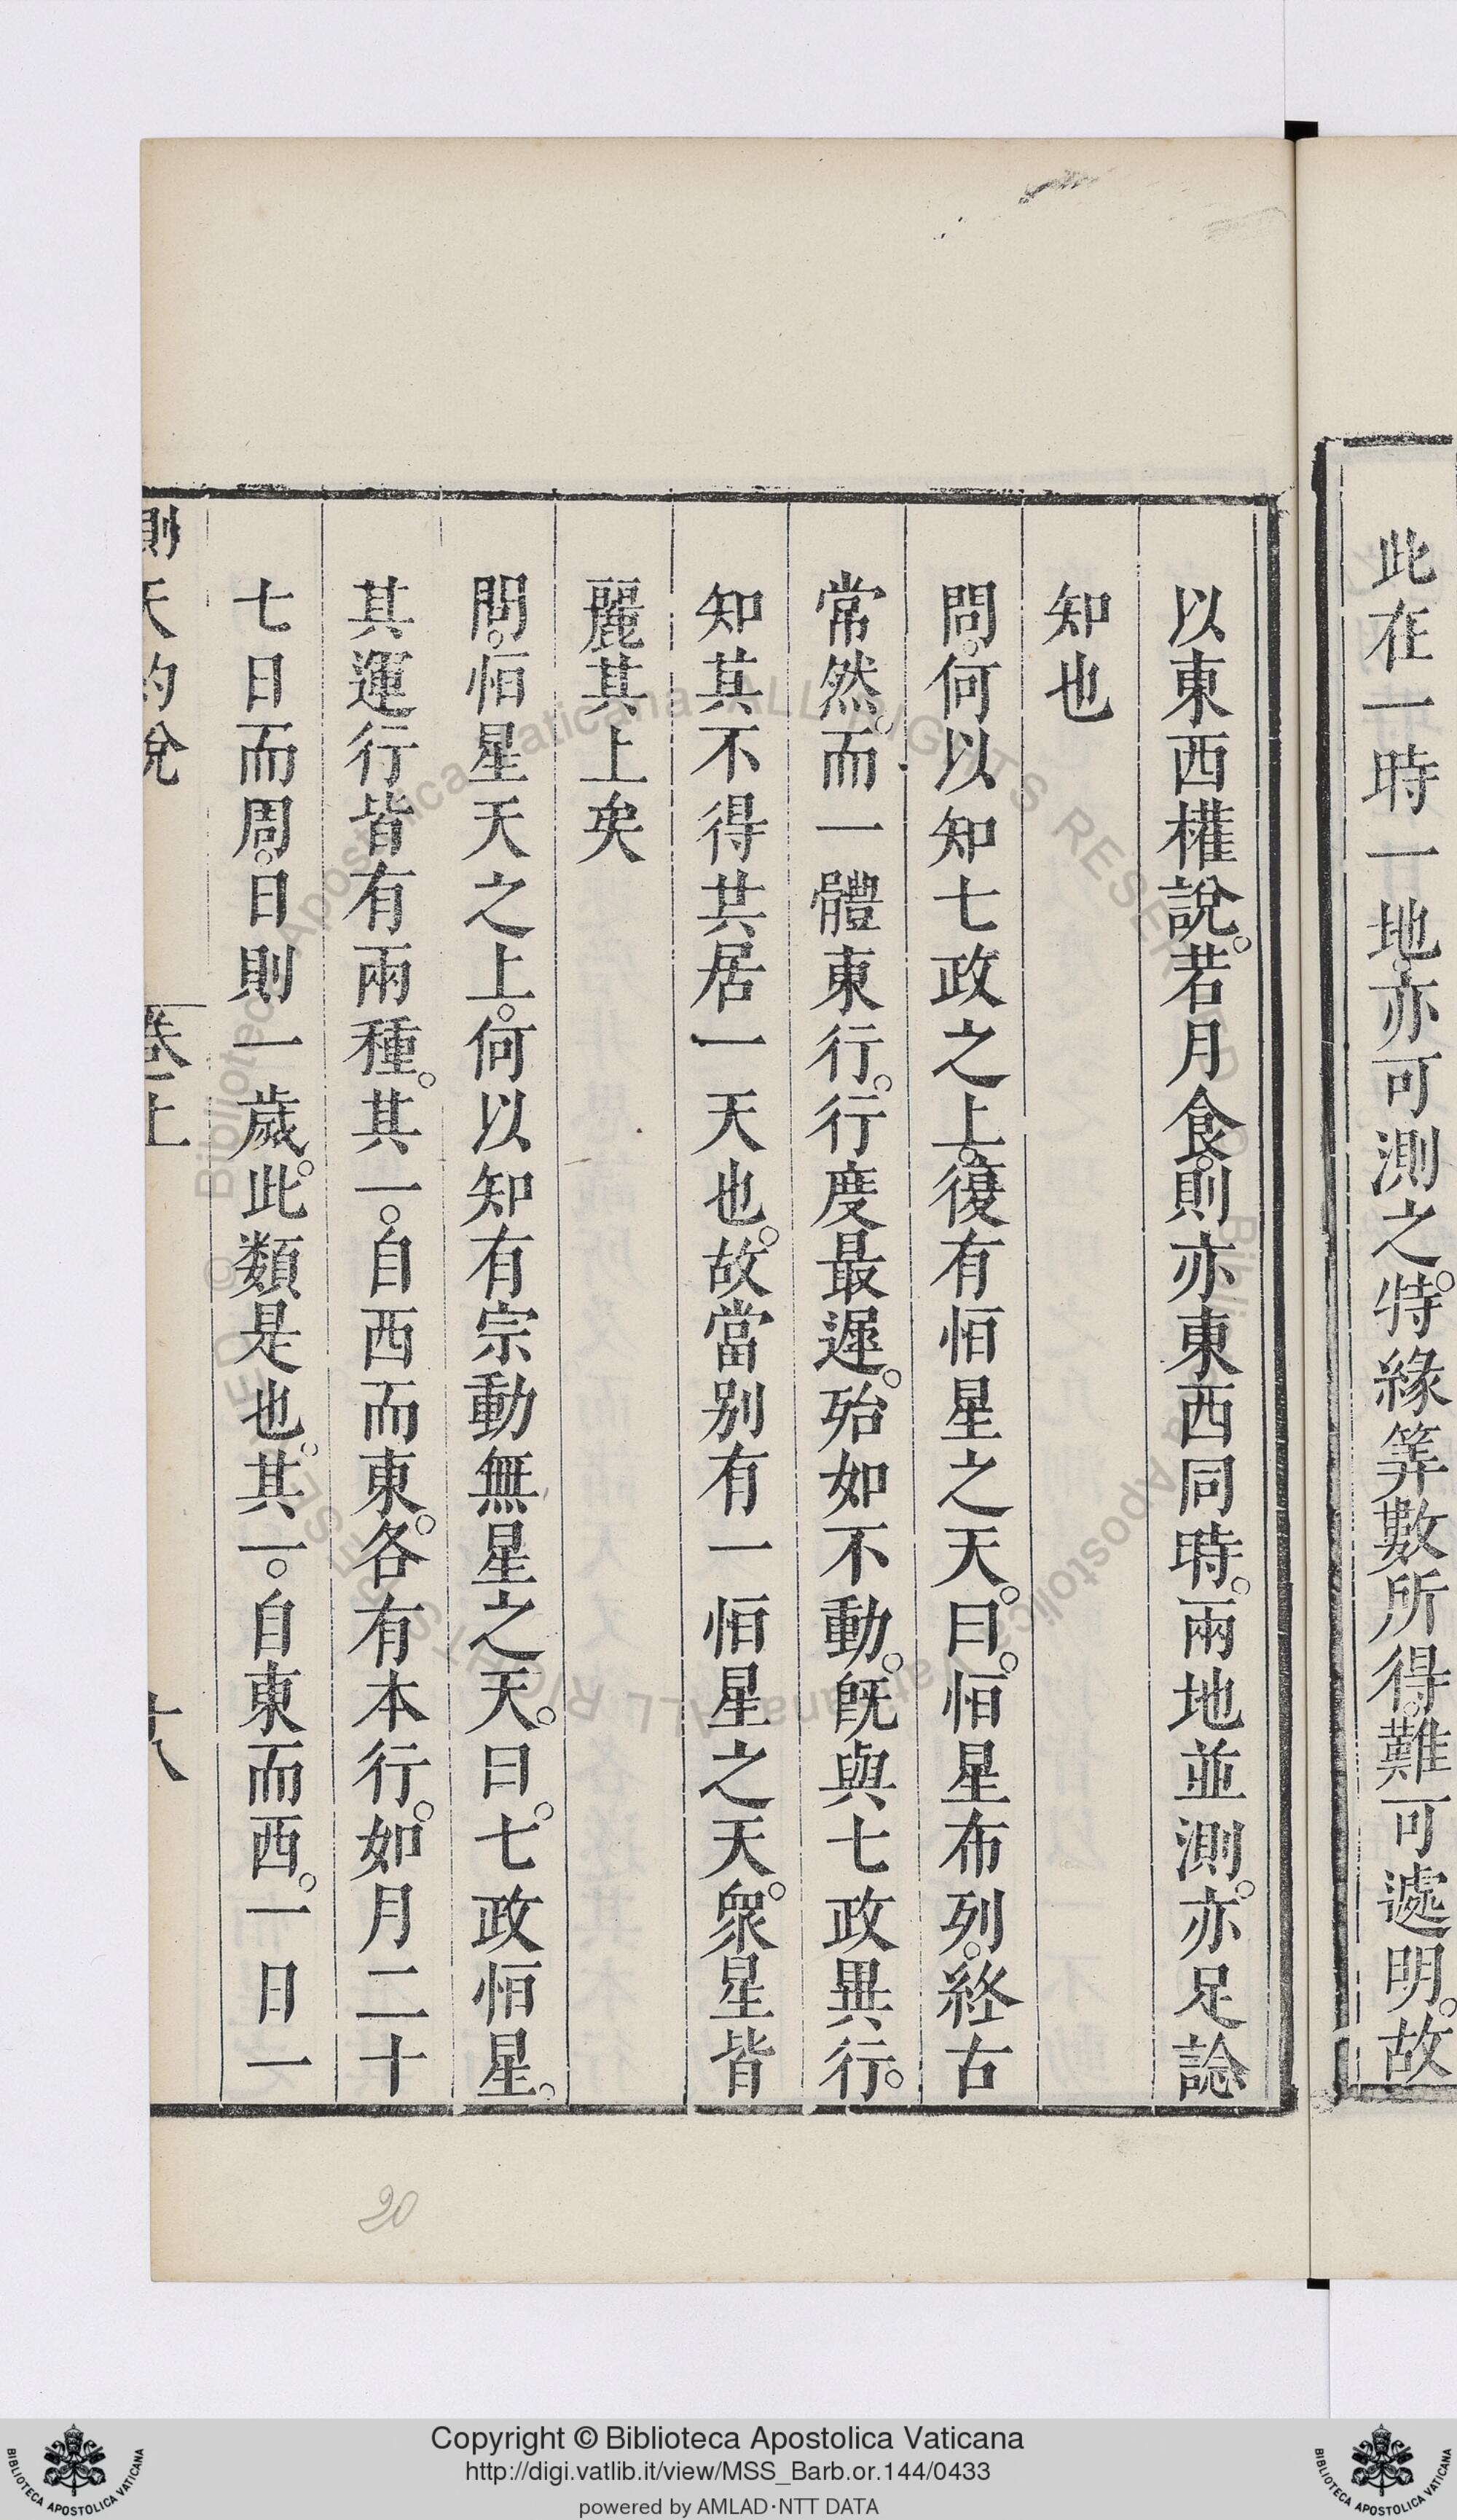 此在一時一地。亦可測之。特緣筭數所得。難可遽明。故
以東西權說。若月食。則亦東西同時。兩地並測。亦足諗
知也
問。何以知七政之上。復有恒星之天。曰。恒星布列。終古
常然。而一體東行。行度最遲。殆如不動。旣與七政異行。
知其不得共居一天也。故當別有一恒星之天。衆星皆
麗其上矣
問。恒星天之上。何以知有宗動無星之天。曰。七政恒星。
其運行皆有兩種。其一。自西而東。各有本行。如月二十
七日而周。日則一歲。此類是也。其一。自東而西。一日一
測天約說 卷上 十八
20
Copyright © Biblioteca Apostolica Vaticana
http://digi.vatlib.it/view/MSS_Barb.or.144/0433
powered by AMLAD·NTT DATA
BIBLIOTECA APOSTOLICA VATICANA
BIBLIOTECA APOSTOLICA VATICANA